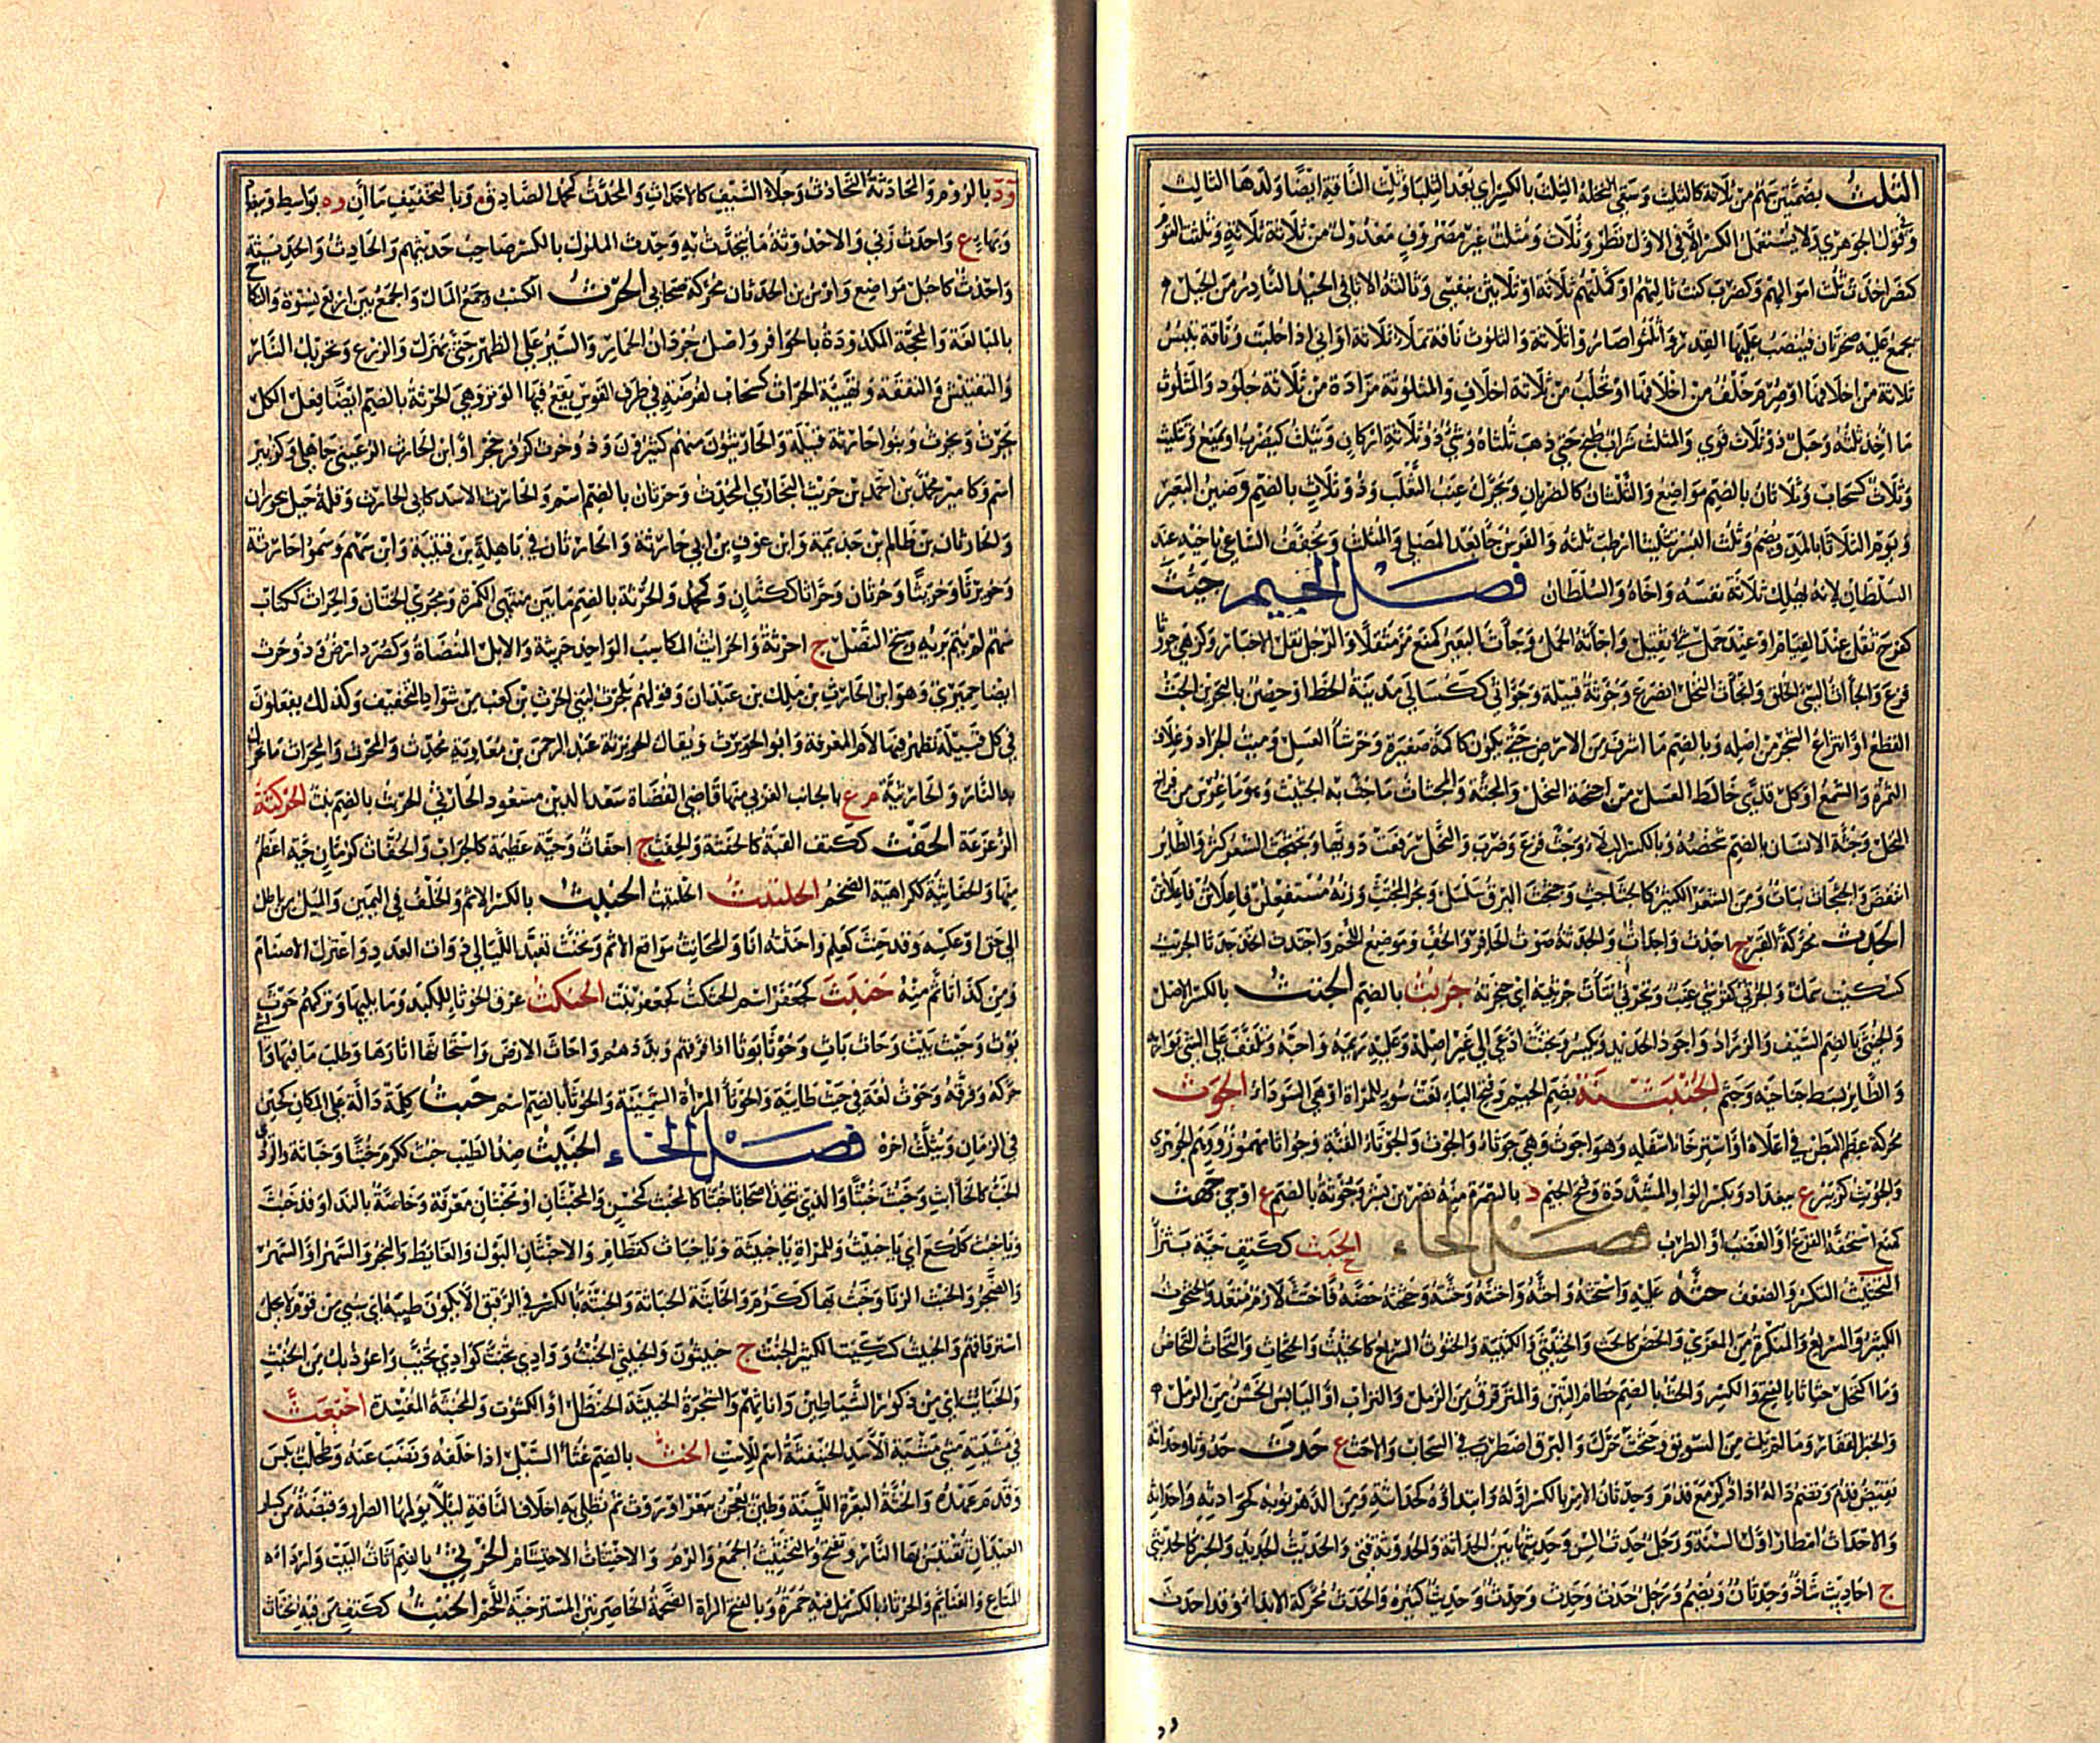 الثلث بضمتين سهم من ثلاثة كالثليث وسقى نخله الثلث بالكسر اي بعد الثنيا وثلث الناقة ايضا ولدها الثالث
وقول الجوهري ولا يستعمل الكسر الا في الاول نظر وثلاث ومثلث غير مصروف معدول من ثلاثة ثلاثة وثلث القوم
كنصر اخذت ثلث اموالهم وكضرب كنت ثالثهم او كملتهم ثلاثة او ثلاثين بنفسي وثالثة الاثافي الحيد النادر من الجبل
يجمع اليه صخرتان فينصب عليها القدر واثلثوا صاروا ثلاثة والثلوث ناقة تملأ ثلاثة اواني اذا حلبت وناقة ييبس
ثلاثة من اخلافها او صرم خلف من اخلافها او تحلب من ثلاثة اخلاف والمثلوثة مزادة من ثلاثة جلود والمثلوث
ما اخذ ثلثه وحبل ذو ثلاث قوي والمثلث شراب طبخ حتى ذهب ثلثاه وشيء ذو ثلاثة اركان ويثلث كيضرب او يمنع وتثليث
وثلاث كسحاب وثلاثان بالضم مواضع والثلثان كالظربان ويحرك عنب الثعلب وذو ثلاث بالضم وضين البعير
ويوم الثلاثا بالمد ويضم وثلث البسر تثليثا ارطب ثلثه والفرس جا بعد المصلي والمثلث ويخفف الساعي باخيه عند
السلطان لانه يهلك ثلاثة نفسه واخاه والسلطان فصل الجيم جئث
كفرح ثقل عند القيام او عند حمل شيء ثقيل واجأثه الحمل وجأث البعير كمنع مر مثقلا والرجل نقل الاخبار وكزهي جؤوثا
فزع والجأاث السيئ الخلق وانجأث النخل انصرع وجؤثة قبيلة وجواثى ككسالى مدينة الخط او حصن بالبحرين الجث
القطع او انتزاع الشجر من اصله وبالضم ما اشرف من الارض حتى يكون كاكمة صغيرة وخرشاء العسل وميت الجراد وغلاف
الثمرة والشمع او كل قذى خالط العسل من اجنحة النحل والمجثة والمجثاث ما جث به الجثيث وهو ما غرس من فراخ
النخل وجثة الانسان بالضم شخصه وبالكسر البلاء وجث فزع وضرب والنحل رفعت دويها وتجثجث الشعر كثر والطاير
انتفض والجثجاث نبات ومن الشعر الكثير كالجثاجث وجثجث البرق سلسل وبحر المجتث وزنه مستفعلن فاعلاتن فاعلاتن
الجدث محركة القبر ج اجدث واجداث والجدثة صوت الحافر والخف وموضع اللحم واجتدث اتخذ جدثا الجريث
كسكيت سمك والجرثي كقرشي عنب وتجرثى نتأت جرثئته اي حنجرته جربث بالضم الجنث بالكسر الاصل
والجنثي بالضم السيف والزراد واجود الحديد ويكسر وتجنث ادعى الى غير اصله وعليه رئمه واحبه وتلفف على الشي يواريه
والطاير بسط جناحيه وجثم الجنبثقة بضم الجيم وفتح الباء نعت سوء للمراة او هي السوداء الجوث
محركة عظم البطن في اعلاه او استرخاء اسفله وهو اجوث وهي جوثاء والجوث والجوثاء القبة وجواثا مهموز ووهم الجوهري
والجويث كزبير ع ببغداد وبكسر الواو المشددة وفتح الجيم د بالبصرة منه نصر بن بشر وجوثة بالضم ع او حي جهث
كمنع استخفه الفزع او الغضب او الطرب فصل الحاء الحبث ككتف حية بتراء
التحتيث التكسر والضعف حثه عليه واستحثه واحثه واحتثه وحثثه وحثحثه حضه فاحتث لازم متعد والحثحوث
الكثير والسريع والمنكرة من المعزى والحض كالحث والحثيثى والكتيبة والحثوث السريع كالحثيث والحثحاث والتحاث التحاض
وما اكتحل حثاثا بالفتح والكسر والحث بالضم حطام التبن والمترقرق من الرمل والتراب او اليابس الخشن من الرمل
والخبز القفار وما لم يلت من السويق وحثحث حرك والبرق اضطرب في السحاب والاحث ع حدث حدوثا وحداثة
نقيض قدم وتضم داله اذا ذكر مع قدم وحدثان الامر بالكسر اوله وابتداؤه كحداثته ومن الدهر نوبه كحوادثه واحداثه
والاحداث امطار اول السنة ورجل حدث السن وحديثها بين الحداثة والحدوثة فتي والحديث الجديد والخبر كالحديثى
ج احاديث شاذ وحدثان ويضم ورجل حدث وحدث وحدث وحديث كثيره والحدث محركة الابداء وقد احدث
ود بالروم والحادثة التحادث وجلاء السيف كالاحداث والمحدث كمحمد الصادق وبالتخفيف ماآن وه بواسط وببغداد
وبهاء ع واحدث زنى والاحدوثة ما يتحدث به وحدث الملوك بالكسر صاحب حديثهم والحادث والحديثة
واحدث كاجبل مواضع واوس بن الحدثان محركة صحابي الحرث الكسب وجمع المال والجمع بين اربع نسوة والنكاح
بالمبالغة والمحجة المكدودة بالحوافر واصل جردان الحمار والسير على الظهر حتى يهزل والزرع وتحريك النار
والتفتيش والتفقه وتهيئة الحراث كسحاب لفرضة في طرف القوس يقع فيها الوتر وهي الحرثة بالضم ايضا فعل الكل
يحرث ويحرث وبنو حارثة قبيلة والحارثيون منهم كثيرون وذو حرث كزفر بن حجر او ابن الحارث الرعيني جاهلي وكزبير
اسم وكامير محمد بن احمد بن حريث البخاري المحدث وحرثان بالضم اسم والحارث الاسد كابي الحارث وقلة جبل بحوران
والحارثان بن ظالم بن جذيمة وابن عوف بن ابي حارثة والحارثان في باهلة بن قتيبة وابن سهم وسموا حارثة
وحويرثا وحريثا وحرثان وحراثا ككتان وكمحمد والحرثة بالضم ما بين منتهى الكمرة ومجرى الختان والحراث ككتاب
سهم لم يتم بريه وسنخ النصل ج احرثة والحرائث المكاسب الواحد حريثة والابل المنضاة وكصرد ارض وذو حرث
ايضا حميري وهو ابن الحارث بن ملك بن عبدان وقولهم بلحرث لبني الحرث بن كعب من شواذ التخفيف وكذلك يفعلون
في كل قبيلة تظهر فيها لام المعرفة وابو الحويرث ويقال الحويرثة عبد الرحمن بن معاوية محدث والمحرث والمحراث ما تحرك
به النار والحارثية م ع بالجانب الغربي منها قاضي القضاة سعد الدين مسعود الحارثي الحربث بالضم نبت الحركثة
الزعزعة الحفث ككتف القبة كالحفثة والحفث ج احفاث وحية عظيمة كالجراب والحفاث كرمان حية اعظم
منها والحفاثية ككراهية الضخم الحلتيث الحلتيت الحنث بالكسر الاثم والخلف في اليمين والميل من باطل
الى حق او عكسه وقد حنث كعلم واحنثته انا والمحانث مواقع الاثم وتحنث تعبد الليالي ذوات العدد واعتزل الاصنام
ومن كذا تاثم منه حنبث كجعفر اسم الحنكث كجعفر نبت الحنكث عرق الحوثاء للكبد وما يليها وتركهم حوث
بوث وحيث بيث وحاث باث وحوثا بوثا اذا فرقهم وبددهم واحاث الارض واستحاثها اثارها وطلب ما فيها
حركه وفرقه وحوث لغة في حيث طائية والحوثاء المرأة السمينة والحوثاء بالضم اسم حيث كلمة دالة على المكان كحين
في الزمان ويثلث اخره فصل الخاء الخبيث ضد الطيب خبث ككرم خبثا وخباثة والردي
الخب كالخابث وخبث خبثا والذي يتخذ اصحابا خبثا كالمخبث كمحسن والمخبثان او مخبثان معرفة وخاصة بالنداء وقد خبث
ويا خبث كلكع اي يا خبيث وللمراة يا خبيثة ويا خباث كقطام والاخبثان البول والغائط والبخر والسهر او السهر
والضجر والخبث الزنا وخبث بها ككرم والخابثة الخباثة والخبثة بالكسر في الرقيق الا يكون طيبة اي سبي من قوم لا يحل
استرقاقهم والخبيث كسكيت الكثير الخبث ج خبيثون والخبيثى الخبث ووادي تخبث كوادي تخيب واعوذ بك من الخبث
والخبائث اي من ذكور الشياطين واناثهم والشجرة الخبيثة الحنظل او الكشوث والمخبثة المفسدة اخبعث
في مشيته مشى مشية الاسد الخنفثة اسم للاست الخث بالضم غثاء السيل اذا خلفه ونضب عنه وطحلب يبس
وقدم عهده والخثة البعرة اللينة وطين يعجن ببعر او روث ثم تطلى به اخلاف الناقة ليلا يولمها الصرار وقبضة من كسار
العيدان تقتبس بها النار وتفتح والتخثيث الجمع والرم والاختثاث الاحتشام الخرثي بالضم اثاث البيت واردا
المتاع والغنائم والخرثاء بالكسر نمل فيه حمرة وبالفتح المراة الضخمة الخاصرتين المسترخية اللحم الخنث ككتف من فيه انخناث